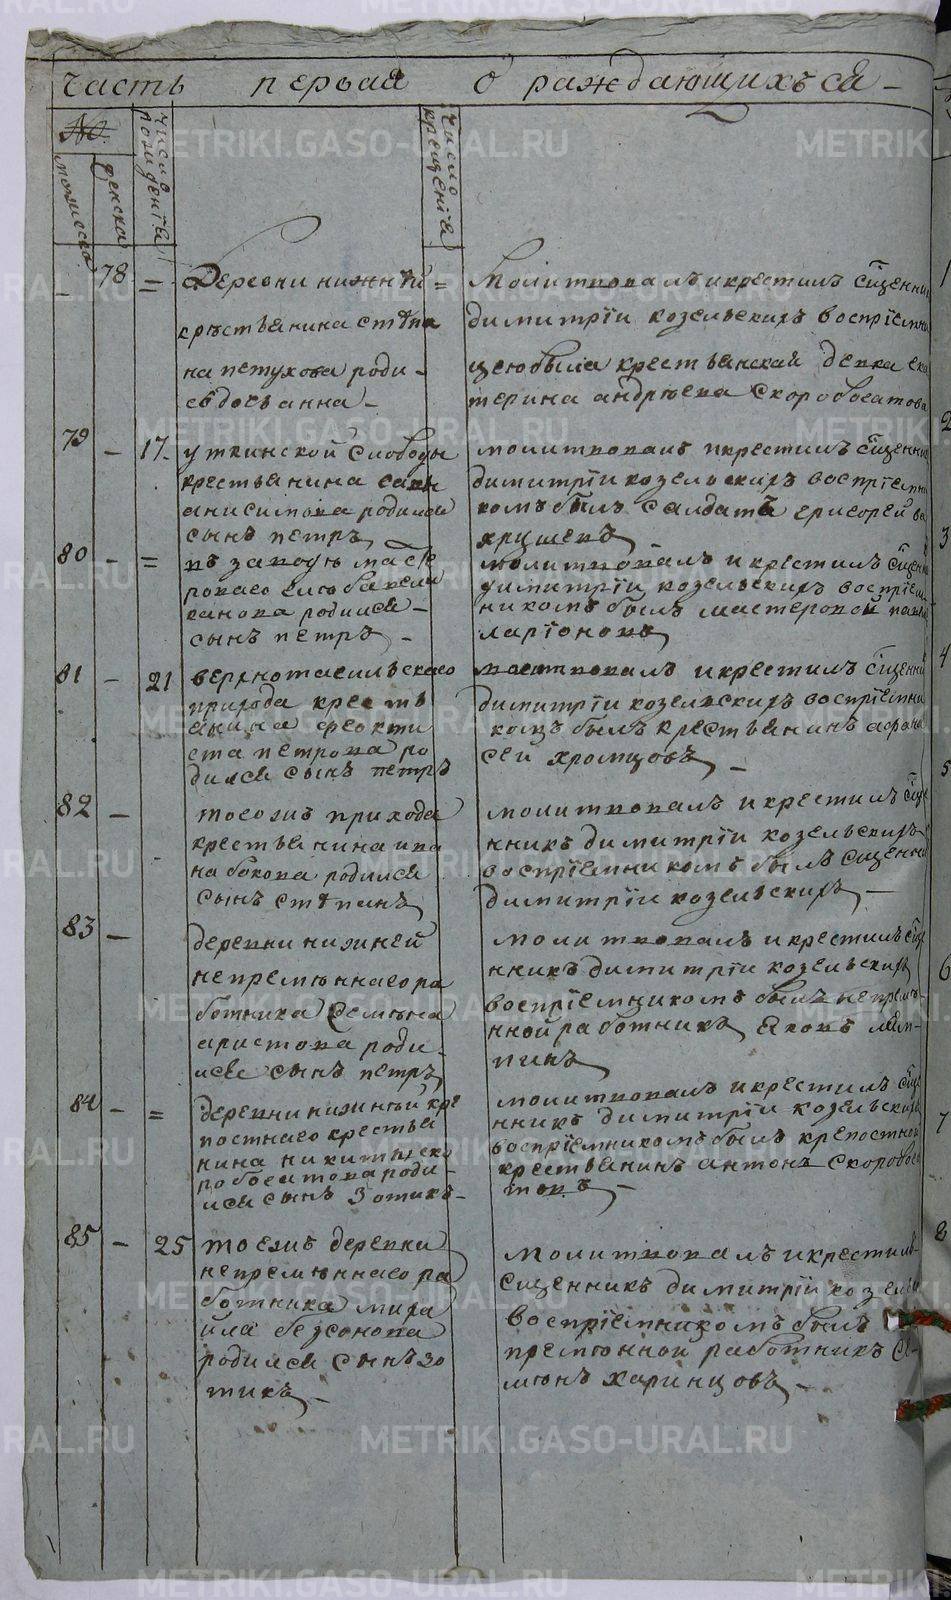 часть первая о раждающихъся
№
мужеска
женска
число рождения
число крещения
78 Деревни нижнѣй
крѣстьянина степа
на петухова роди
анна
молитвовалъ и крестилъ сщенник
димитрїи козельскихъ воспрїемни
цею была крестьянская девка ека
терина андрѣева скоробогатова
79 17 уткинской слободы
крестьянина савы
анисимова родился
сынъ петръ
молитвовалъ и крестилъ сщенник
димитрїи козельскихъ воспрїемни
комъ былъ салдатъ григорей
80
родился
сынъ петръ
молитвовалъ и крестилъ сщенни
димитрїи козельскихъ воспрїем
никомъ былъ мастеровой
ларїоновъ
81 21 верхнотагильскаго
прихода кресть
янина феокти
ста петрова ро
дился сынъ петръ
молитвовалъ и крестилъ сщенник
димитрїи козельскихъ воспрїемни
комъ былъ крестьянинъ афана
сеи хромцовъ
82 тогожъ прихода
крестьянина ива
на бокова родился
сынъ степанъ
молитвовалъ и крестилъ сще
нникъ димитрїи козельскихъ
воспрїемникомъ былъ сщенни
димитрїи козельскихъ
83 деревни нижней
непремѣннаго ра
ботника семѣна
аристова роди
лся сынъ петръ
молитвовалъ и крестилъ сще
нникъ димитрїи козельскихъ
воспрїемникомъ былъ непремѣ
нной работникъ яковъ ляп
пинъ
84 деревни нижнѣй кре
постнаго крестья
нина никиты ско
робогатова роди
лся сынъ зотикъ
молитвовалъ и крестилъ сще
нникъ димитрїи козельскихъ
воспрїемникомъ былъ крепостной
крестьянинъ антонъ скоробога
товъ
85 25 тоежъ деревни
непремѣннаго ра
ботника миха
ила безсонова
родился сынъ зо
тикъ
молитвовалъ и крестилъ
сщенникъ димитрїи козель
воспрїемникомъ былъ
премѣнной работникъ се
мѣнъ харинцовъ
METRIKI.GASO-URAL.RU